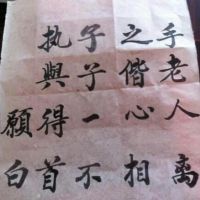 执子之手
與子偕老
願得一心人
白首不相离